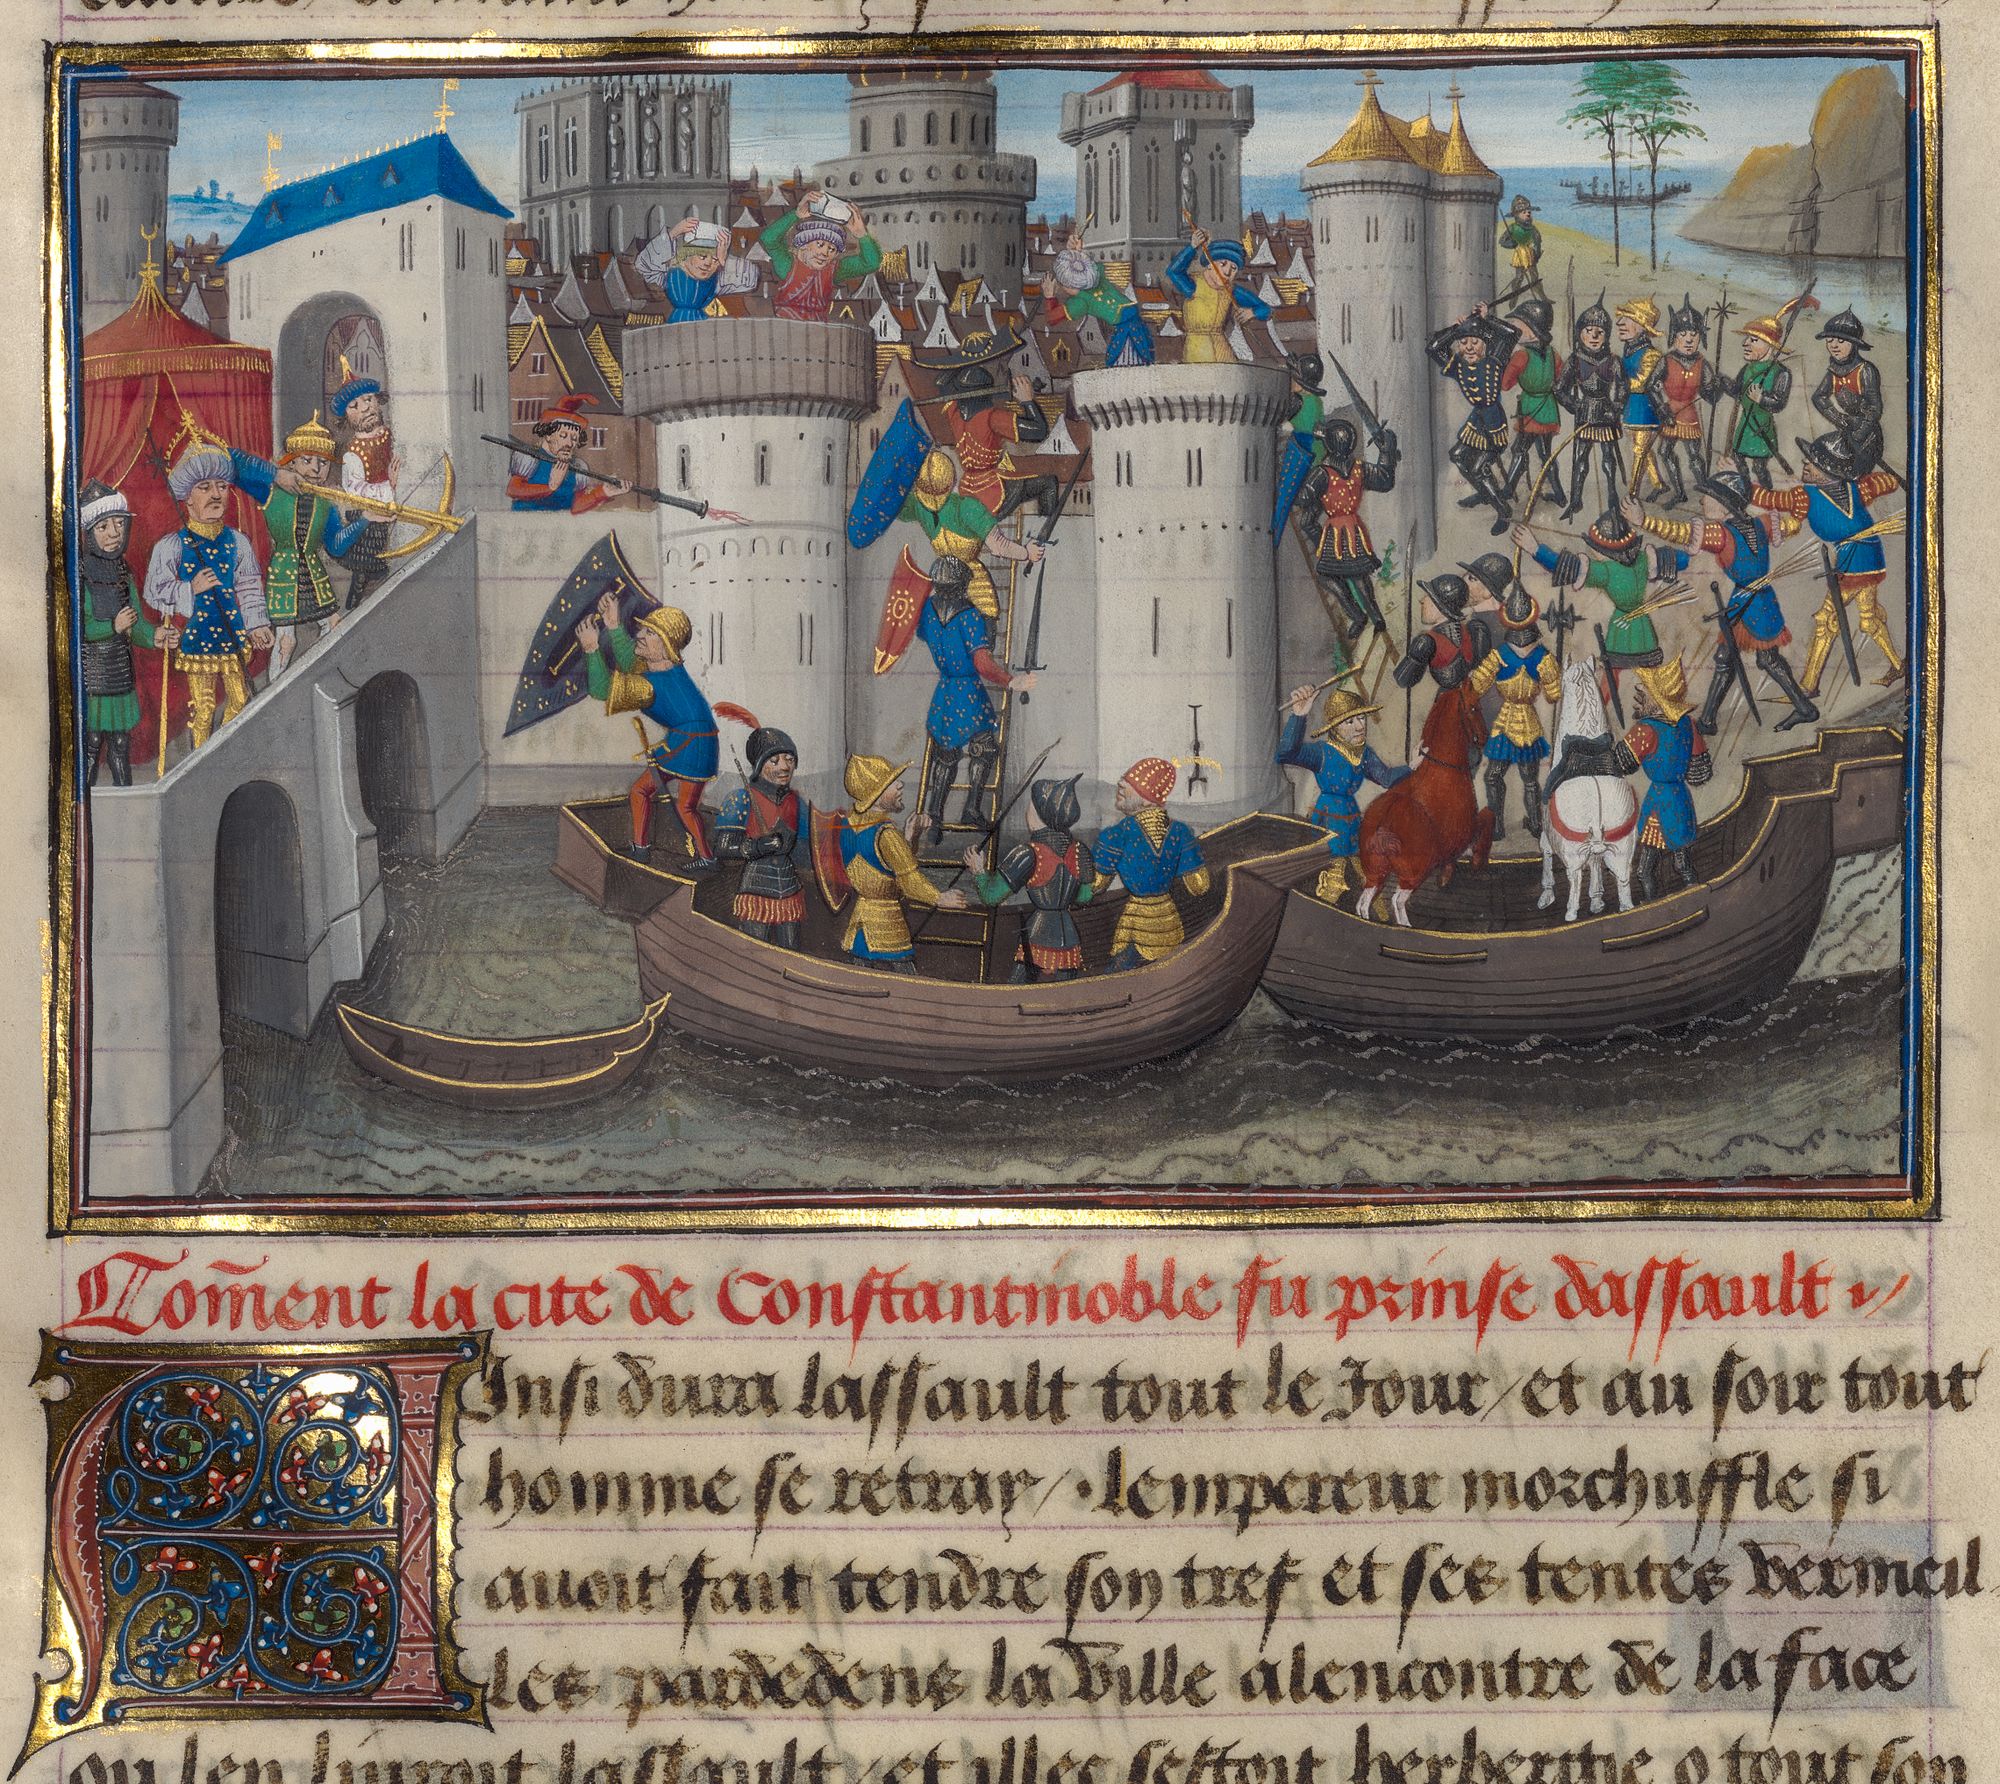 Com̄ent la cite de Constantinoble fu prinse dassault
Ainsi dura lassault tout le Jour / et au soir tout
homme se retray / . Lempereur morchuffle si
auoit fait tendre son tref et ses tentes vermeil
les pardedens la ville alencontre de la face
ou len liuroit lassault / et illec sestoit herbergie o tout son